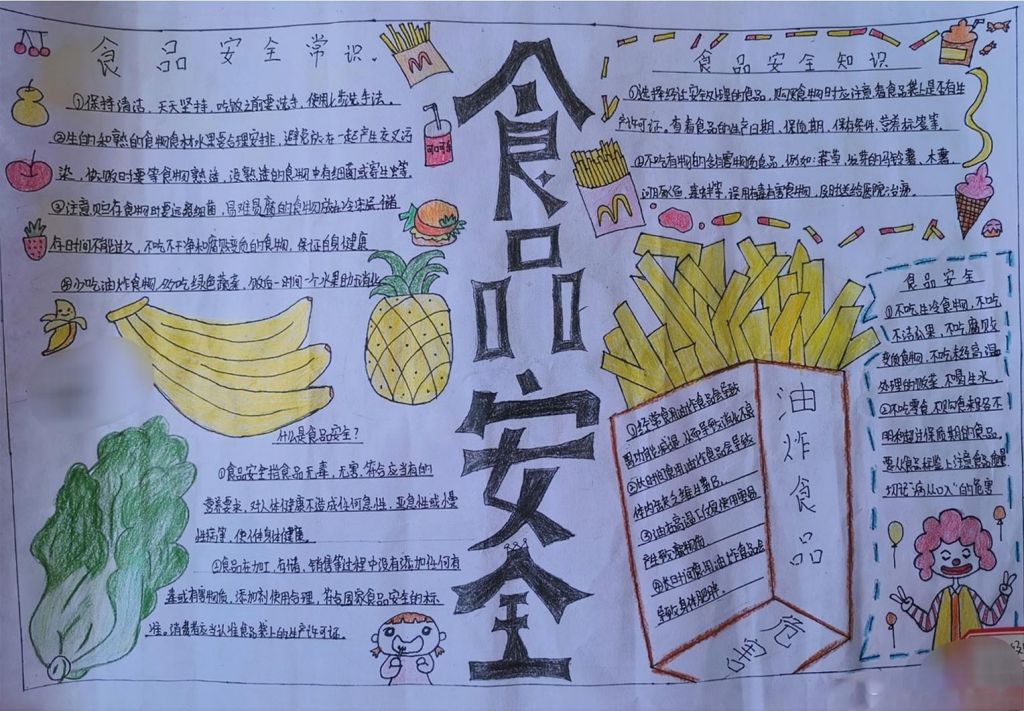 食品安全常识.
①保持清洁，天天坚持，吃饭之前要洗手，使用七步洗手法。
②生的和熟的食物食材水果要合理安排，避免放在一起产生交叉污
染，做饭时要等食物熟透，没熟透的食物中有细菌或寄生虫等.
③注意贮存食物时要远离细菌，易腐的食物放冰冻层，储
存时间不能过久，不吃不干净和腐败变色的食物，保证自身健康
④少吃油炸食物，多吃绿色蔬菜，饭后一时间一个水果助消化
可口可乐
什么是食品安全？
①食品安全指食品无毒、无害，符合应当有的
营养要求，对人体健康不造成任何急性，亚急性或慢
性病等，使个体身体健康。
②食品在加工，存储，销售等过程中没有添加任何有
毒或有害物质，添加剂使用合理，符合国家食品安全的标
准。消费者应当认准食品袋上的生产许可证.
食品安全
食品安全知识
①选择经过安全处理的食品，购买食物时应注意看食品袋上是否有生
产许可证。查看食品的生产日期、保质期，保存条件，营养标签等。
②不吃有物的含毒物的食品，例如：毒草，发芽的马铃薯、木薯、
河豚鱼，毒蚌等，误用毒害食物，及时送给医院治病。
油炸食品
危害
①经常食用油炸食品会导致
胃功能减退，从而导致消化不良
②长时间食用油炸食品会导致
体内缺乏维生素B。
③油在高温下反复使用更易
产生致癌物质
④长时间食用油炸食品会
导致身体肥胖。
食品安全
①不吃生冷食物，不吃
不洁瓜果，不吃腐败
变质食物，不吃未经高温
处理的饭菜，不喝生水，
②不吃零食，不购食来路不
明和超过保质期的食品，
要从食品标签上注意食品质量
切记“病从口入”的危害